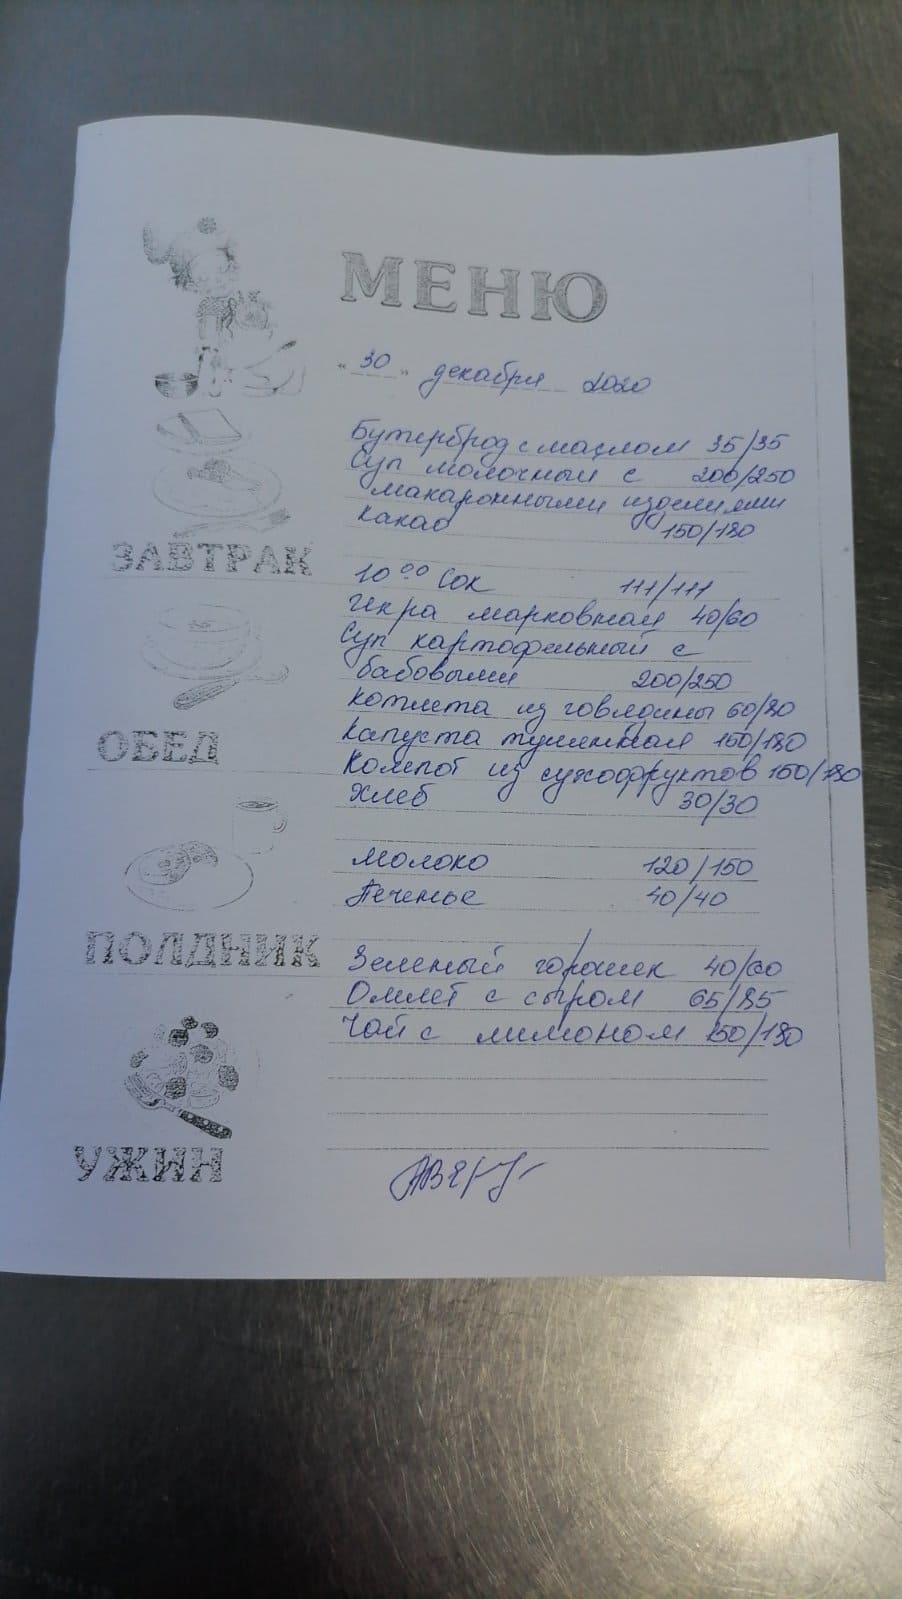 МЕНЮ
"30" декабря 2020
Бутерброд с маслом 35/35
Суп молочный с 200/250
макаронными изделиями
Какао 150/180
ЗАВТРАК
10⁰⁰ Сок 111/111
Икра марковная 40/60
Суп картофельный с
бабовыми 200/250
Котлета из говядины 60/80
Капуста тушенная 150/180
Компот из сухофруктов 150/180
Хлеб 30/30
ОБЕД
Молоко 120/150
Печенье 40/40
ПОЛДНИК
Зеленый горошек 40/60
Омлет с сыром 65/85
Чай с лимоном 150/180
УЖИН